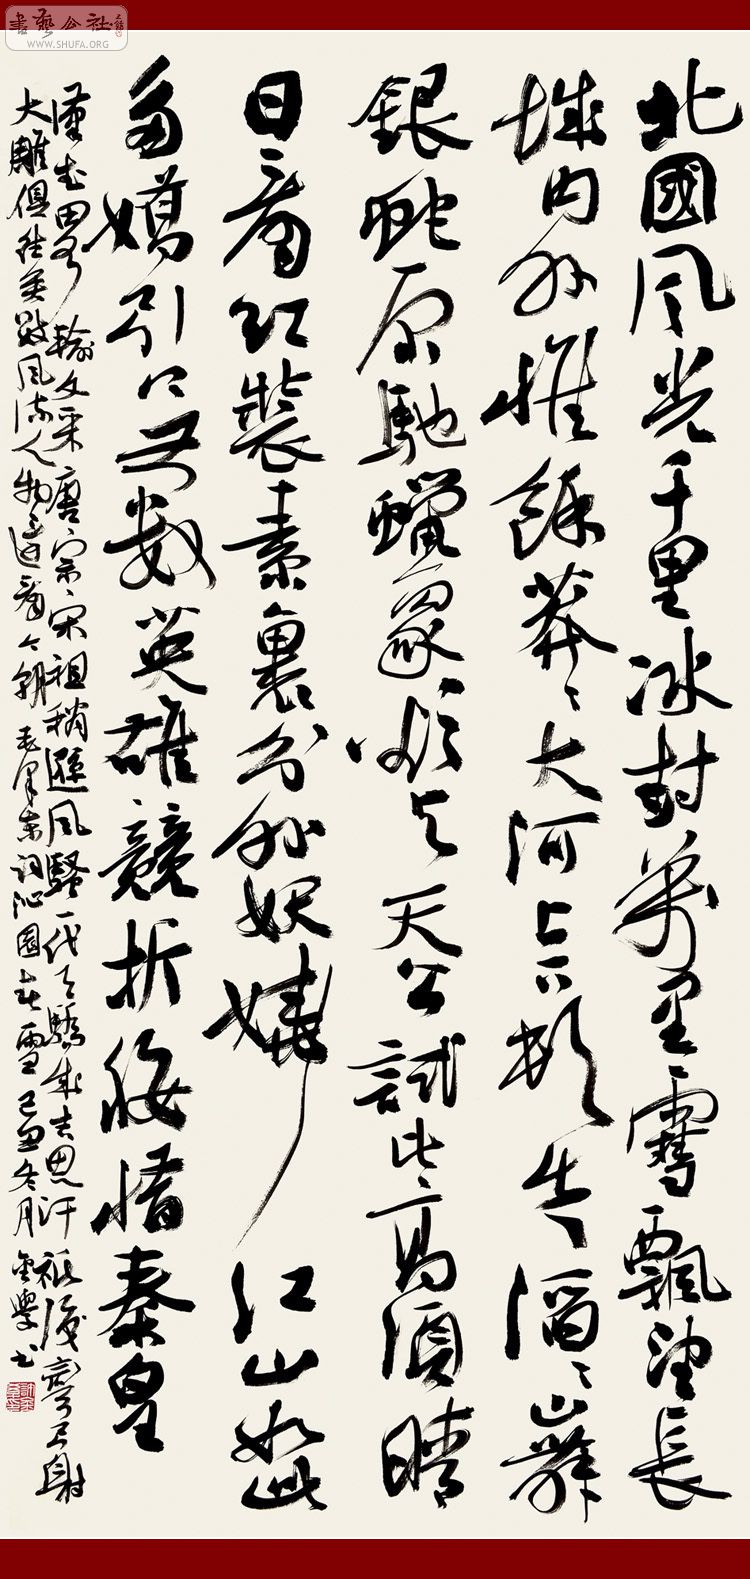 書藝公社
WWW.SHUFA.ORG
北國風光千里冰封萬里雪飄望長
城内外惟餘莽莽大河上下頓失滔滔山舞
銀蛇原馳蠟象欲與天公試比高須晴
日看紅裝素裹分外妖嬈江山如此
多嬌引無數英雄競折腰惜秦皇
漢武略輸文采唐宗宋祖稍遜風騷一代天驕成吉思汗祇識彎弓射
大雕俱往矣數風流人物還看今朝 毛澤東詞沁園春雪 己丑冬月 金學書